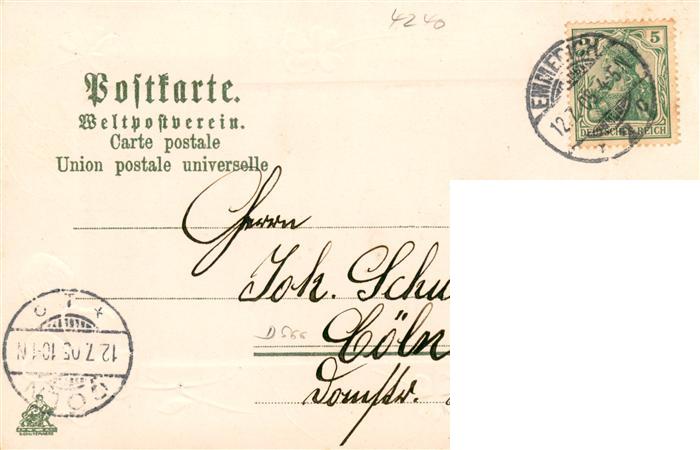 4240
5
DEUTSCHES REICH
EMMERICH
12.7.05.4-5N
Postkarte.
Weltpostverein.
Carte postale
Union postale universelle
Herrn
Joh. Schu
D 566
Cöln
Domstr.
CÖLN
12.7.05.10-11N